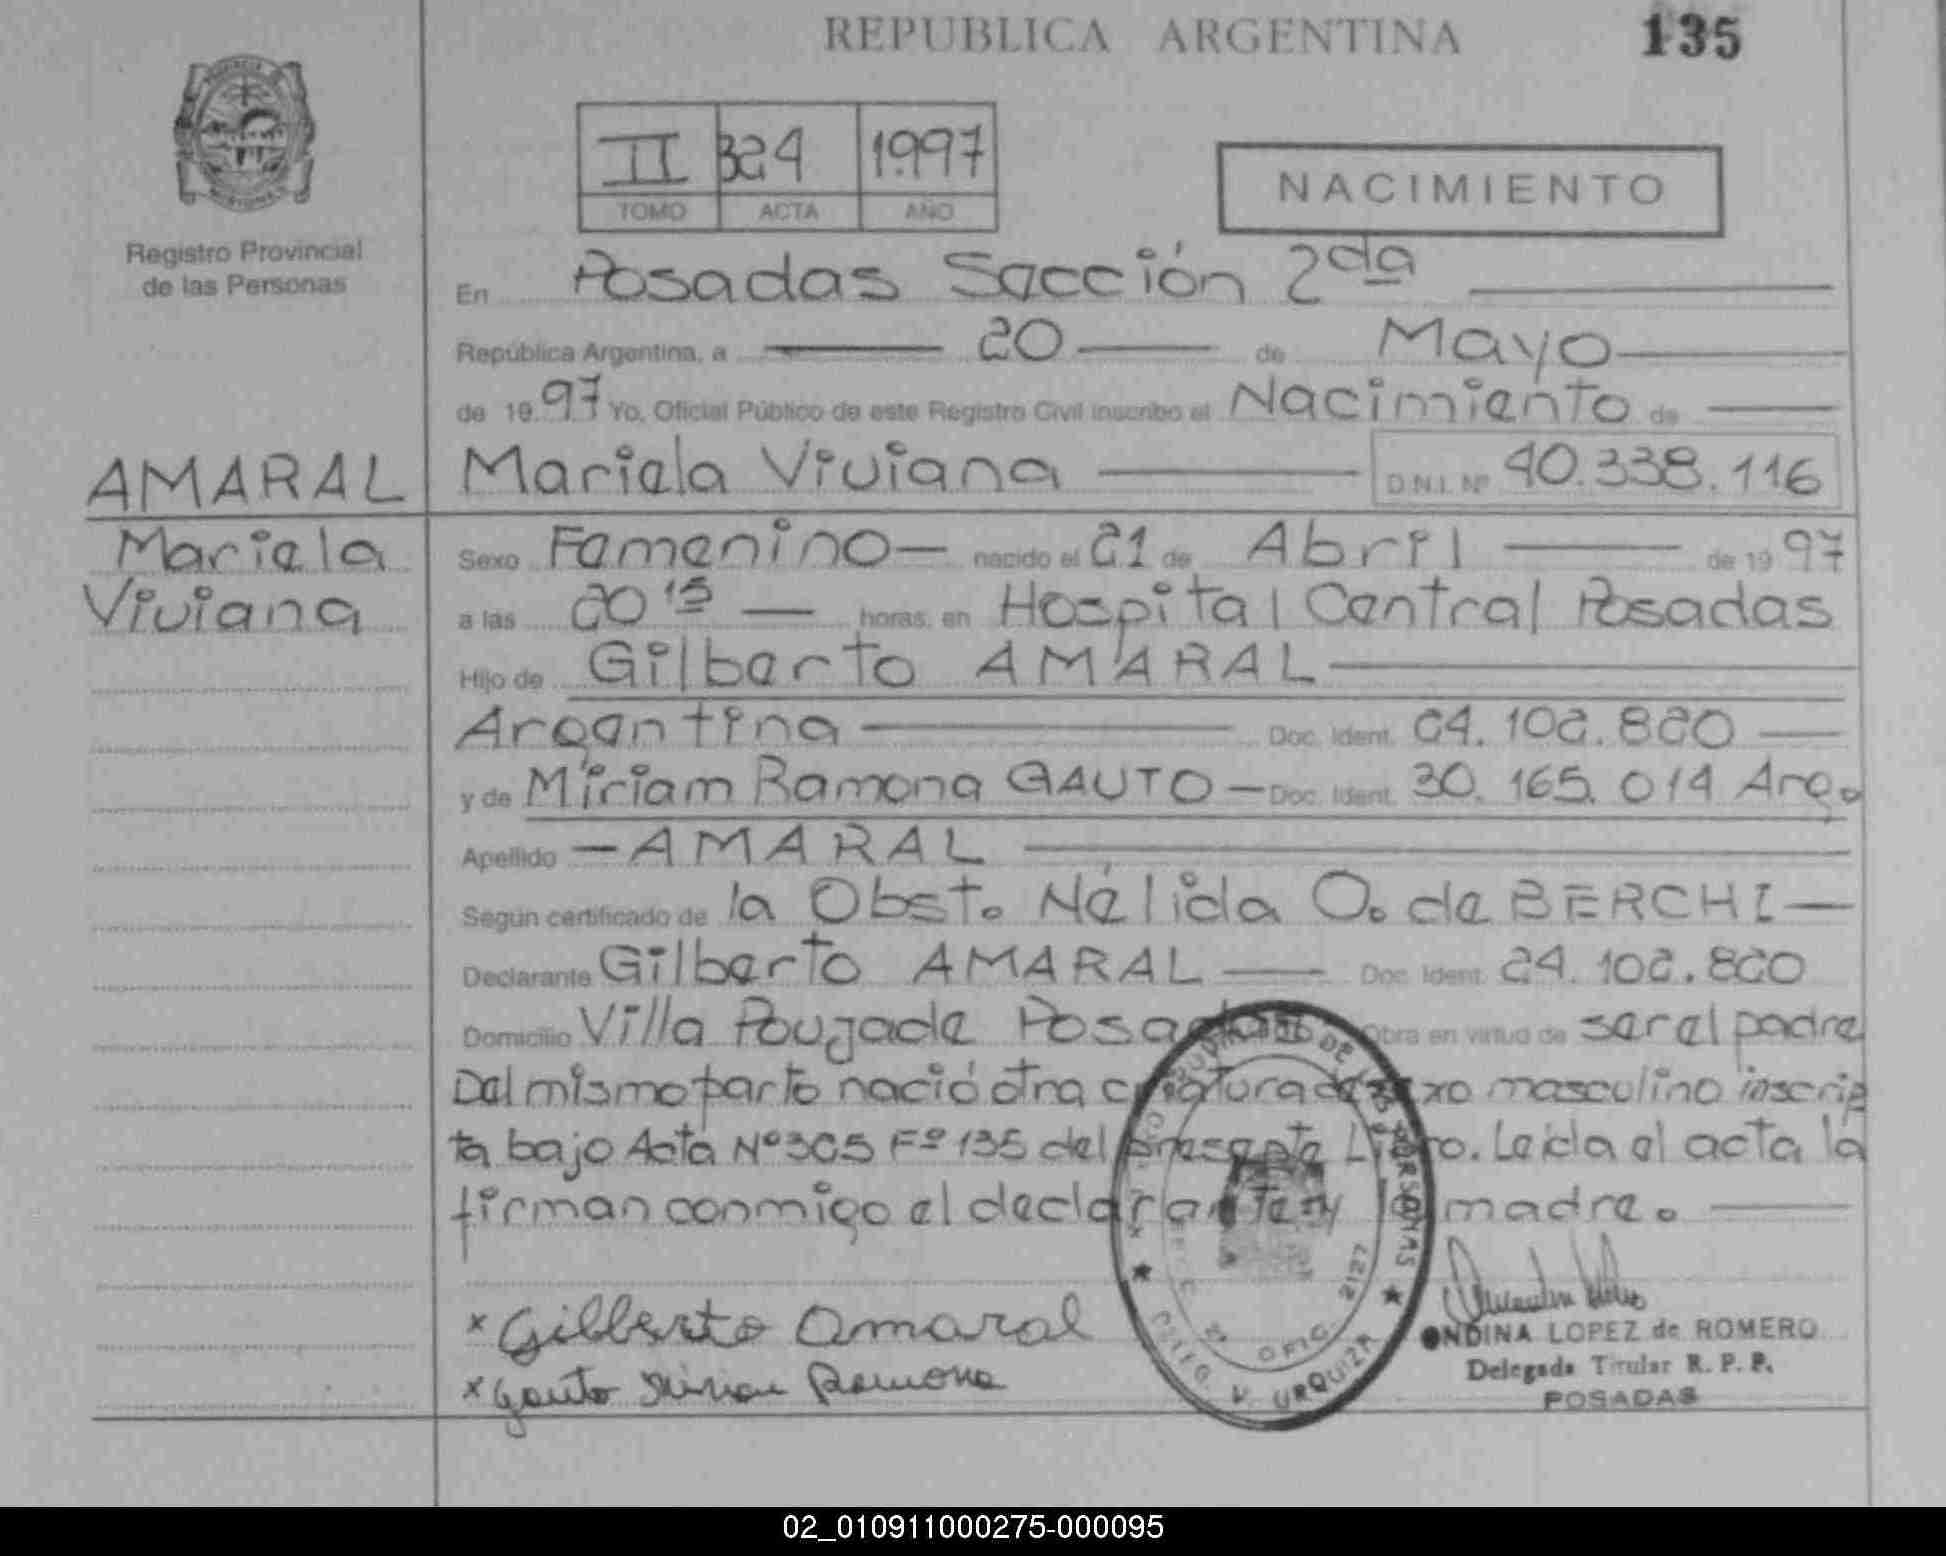 REPUBLICA ARGENTINA 135
II 324 1997
TOMO ACTA AÑO
NACIMIENTO
Registro Provincial
de las Personas
En Posadas Sección 2da
República Argentina, a 20 de Mayo
de 1997 Yo, Oficial Público de este Registro Civil inscribo el Nacimiento de
AMARAL Mariela Viviana D.N.I. Nº 40.338.116
Mariela
Viviana
Sexo Femenino nacido el 21 de Abril de 1997
a las 20 15 horas, en Hospital Central Posadas
Hijo de Gilberto AMARAL
Argentina Doc. Ident. 24.102.820
y de Miriam Ramona GAUTO Doc. Ident. 30.165.014 Arg.
Apellido AMARAL
Según certificado de la Obst. Nélida O. de BERCHI
Declarante Gilberto AMARAL Doc. Ident. 24.102.820
Domicilio Villa Poujade Posadas Obra en virtud de ser el padre
Del mismo parto nació otra criatura de sexo masculino inscrip
ta bajo Acta Nº 325 Fº 135 del presente Libro. Leida el acta la
firman conmigo el declarante y la madre.
x Gilberto Amaral
x Gauto Miriam Ramona
OFIC. 2127
V. URQUIZA
ONDINA LOPEZ de ROMERO
Delegada Titular R. P. P.
POSADAS
02_010911000275-000095